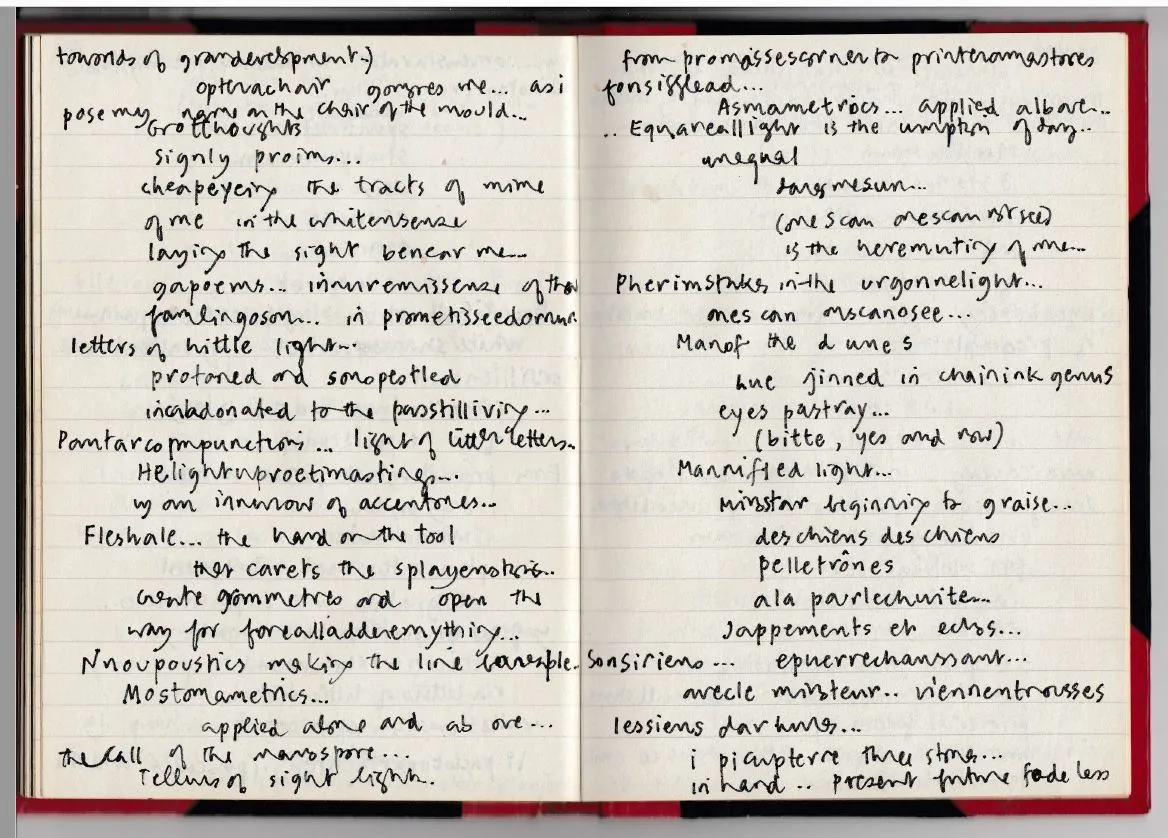 towards of granderelopment)
opterachair gongres me... as i
pose my name on the chair of the mould...
Grotthoughts
signly proims...
cheapeyeing the tracts of mime
of me in the whitensenze
laying the sight benear me...
gapoems... innuremissenze of
familingoson... in
letters of little light...
protoned and sonopestled
incabdonated to the passtilliving...
light of little letters...
of accentones...
Fleshale... the hand on the tool
carets the
create gommetres and open the
way for forealladderemything...
making the line
Mostomametrics...
applied alone and above...
the call of the manspore...
Tellins of sight light..
from promissescorner to printeramastores
fonsifflead...
Asmametrocs... applied albave...
.. Equareallight is the umption of day..
unequal
dansmesun...
(onescan onescan not see)
is the heremutiny of me...
Pherimstaks in the urgonnelight...
ones can onscanosee...
Manof the dunes
hue jinned in chainink genus
eyes pastray...
(bitte, yes and now)
Mannified light...
minstar beginning to graise...
des chiens des chiens
pelletrônes
ala parlechuite...
Jappements et echos...
Sonsiriens ... epuerrechaussant...
avecle minsteur.. viennentrousses
lessiens darkunes...
i picupterre three stones...
in hand .. present future fade less